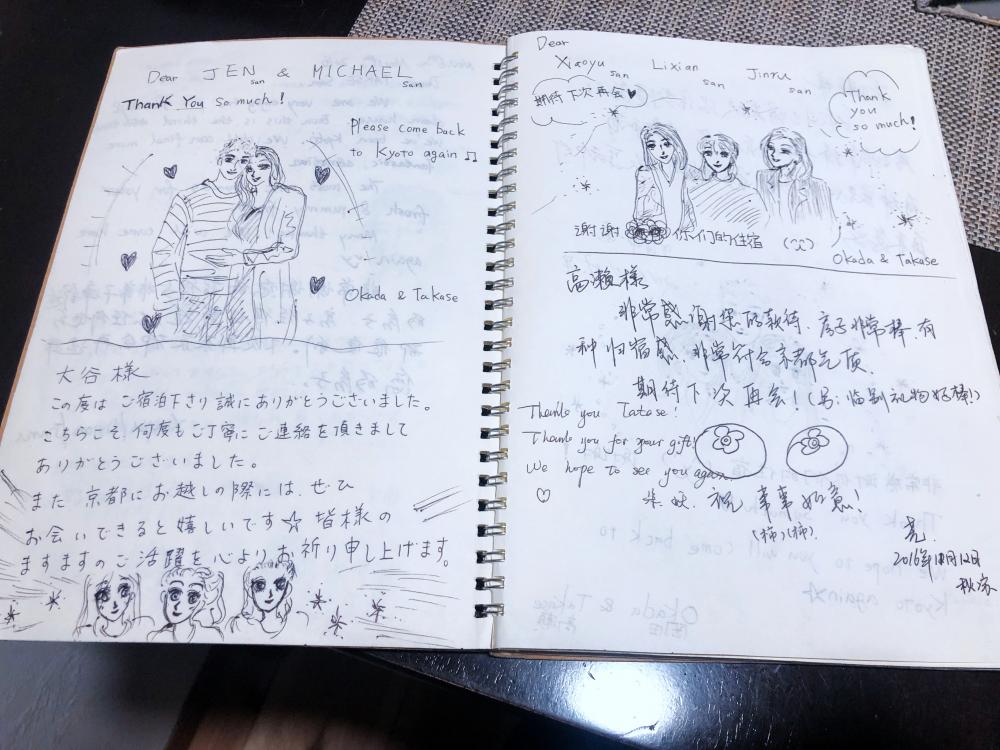 Dear JEN san & MICHAEL san
Thank You so much!
Please come back
to Kyoto again ♫
Okada & Takase
大谷様
この度は ご宿泊下さり誠にありがとうございました。
こちらこそ 何度もご丁寧に ご連絡を頂きまして
ありがとうございました。
また 京都に お越しの際には、ぜひ
お会いできると嬉しいです☆ 皆様の
ますますのご活躍を心よりお祈り申し上げます。
Dear
Xiaoyu san Lixian san Jinru san
期待下次再会♥
Thank
you
so much!
谢谢 你们的住宿
Okada & Takase
高瀬様
非常感谢您的款待、房子非常棒、有
种归宿感、非常符合京都气质.
期待下次再会!(另:临别礼物好棒!)
Thank you Tatase!
Thank you for your gift!
We hope to see you again
♡
祝 事事如意!
(柿)(柿)
亮.